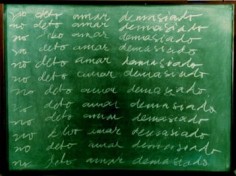 no debo amar demasiado
no debo amar demasiado
no debo amar demasiado
no debo amar demasiado
no debo amar demasiado
no debo amar demasiado
no debo amar demasiado
no debo amar demasiado
no debo amar demasiado
no debo amar demasiado
no debo amar demasiado
no debo amar demasiado